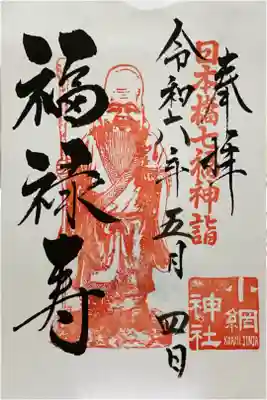 奉拝
日本橋七福神詣
令和六年五月四日
福禄寿
小網
神社
KOAMI JINJA